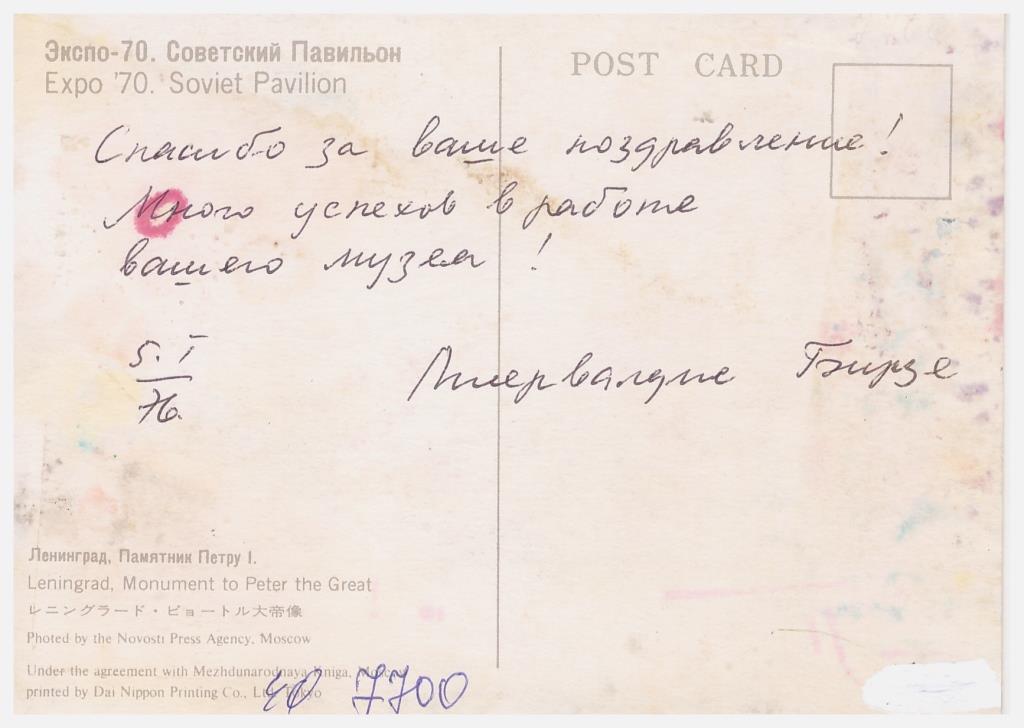 Экспо-70. Советский Павильон
Expo '70. Soviet Pavilion
POST CARD
Спасибо за ваше поздравление!
Много успехов в работе
вашего музея !
5. I
76.
Бирзе
Ленинград, Памятник Петру I.
Leningrad, Monument to Peter the Great
レニングラード・ピョートル大帝像
Photed by the Novosti Press Agency, Moscow
Under the agreement with Mezhdunarodnaya Kniga, Moscow
printed by Dai Nippon Printing Co., Ltd. Tokyo
7700